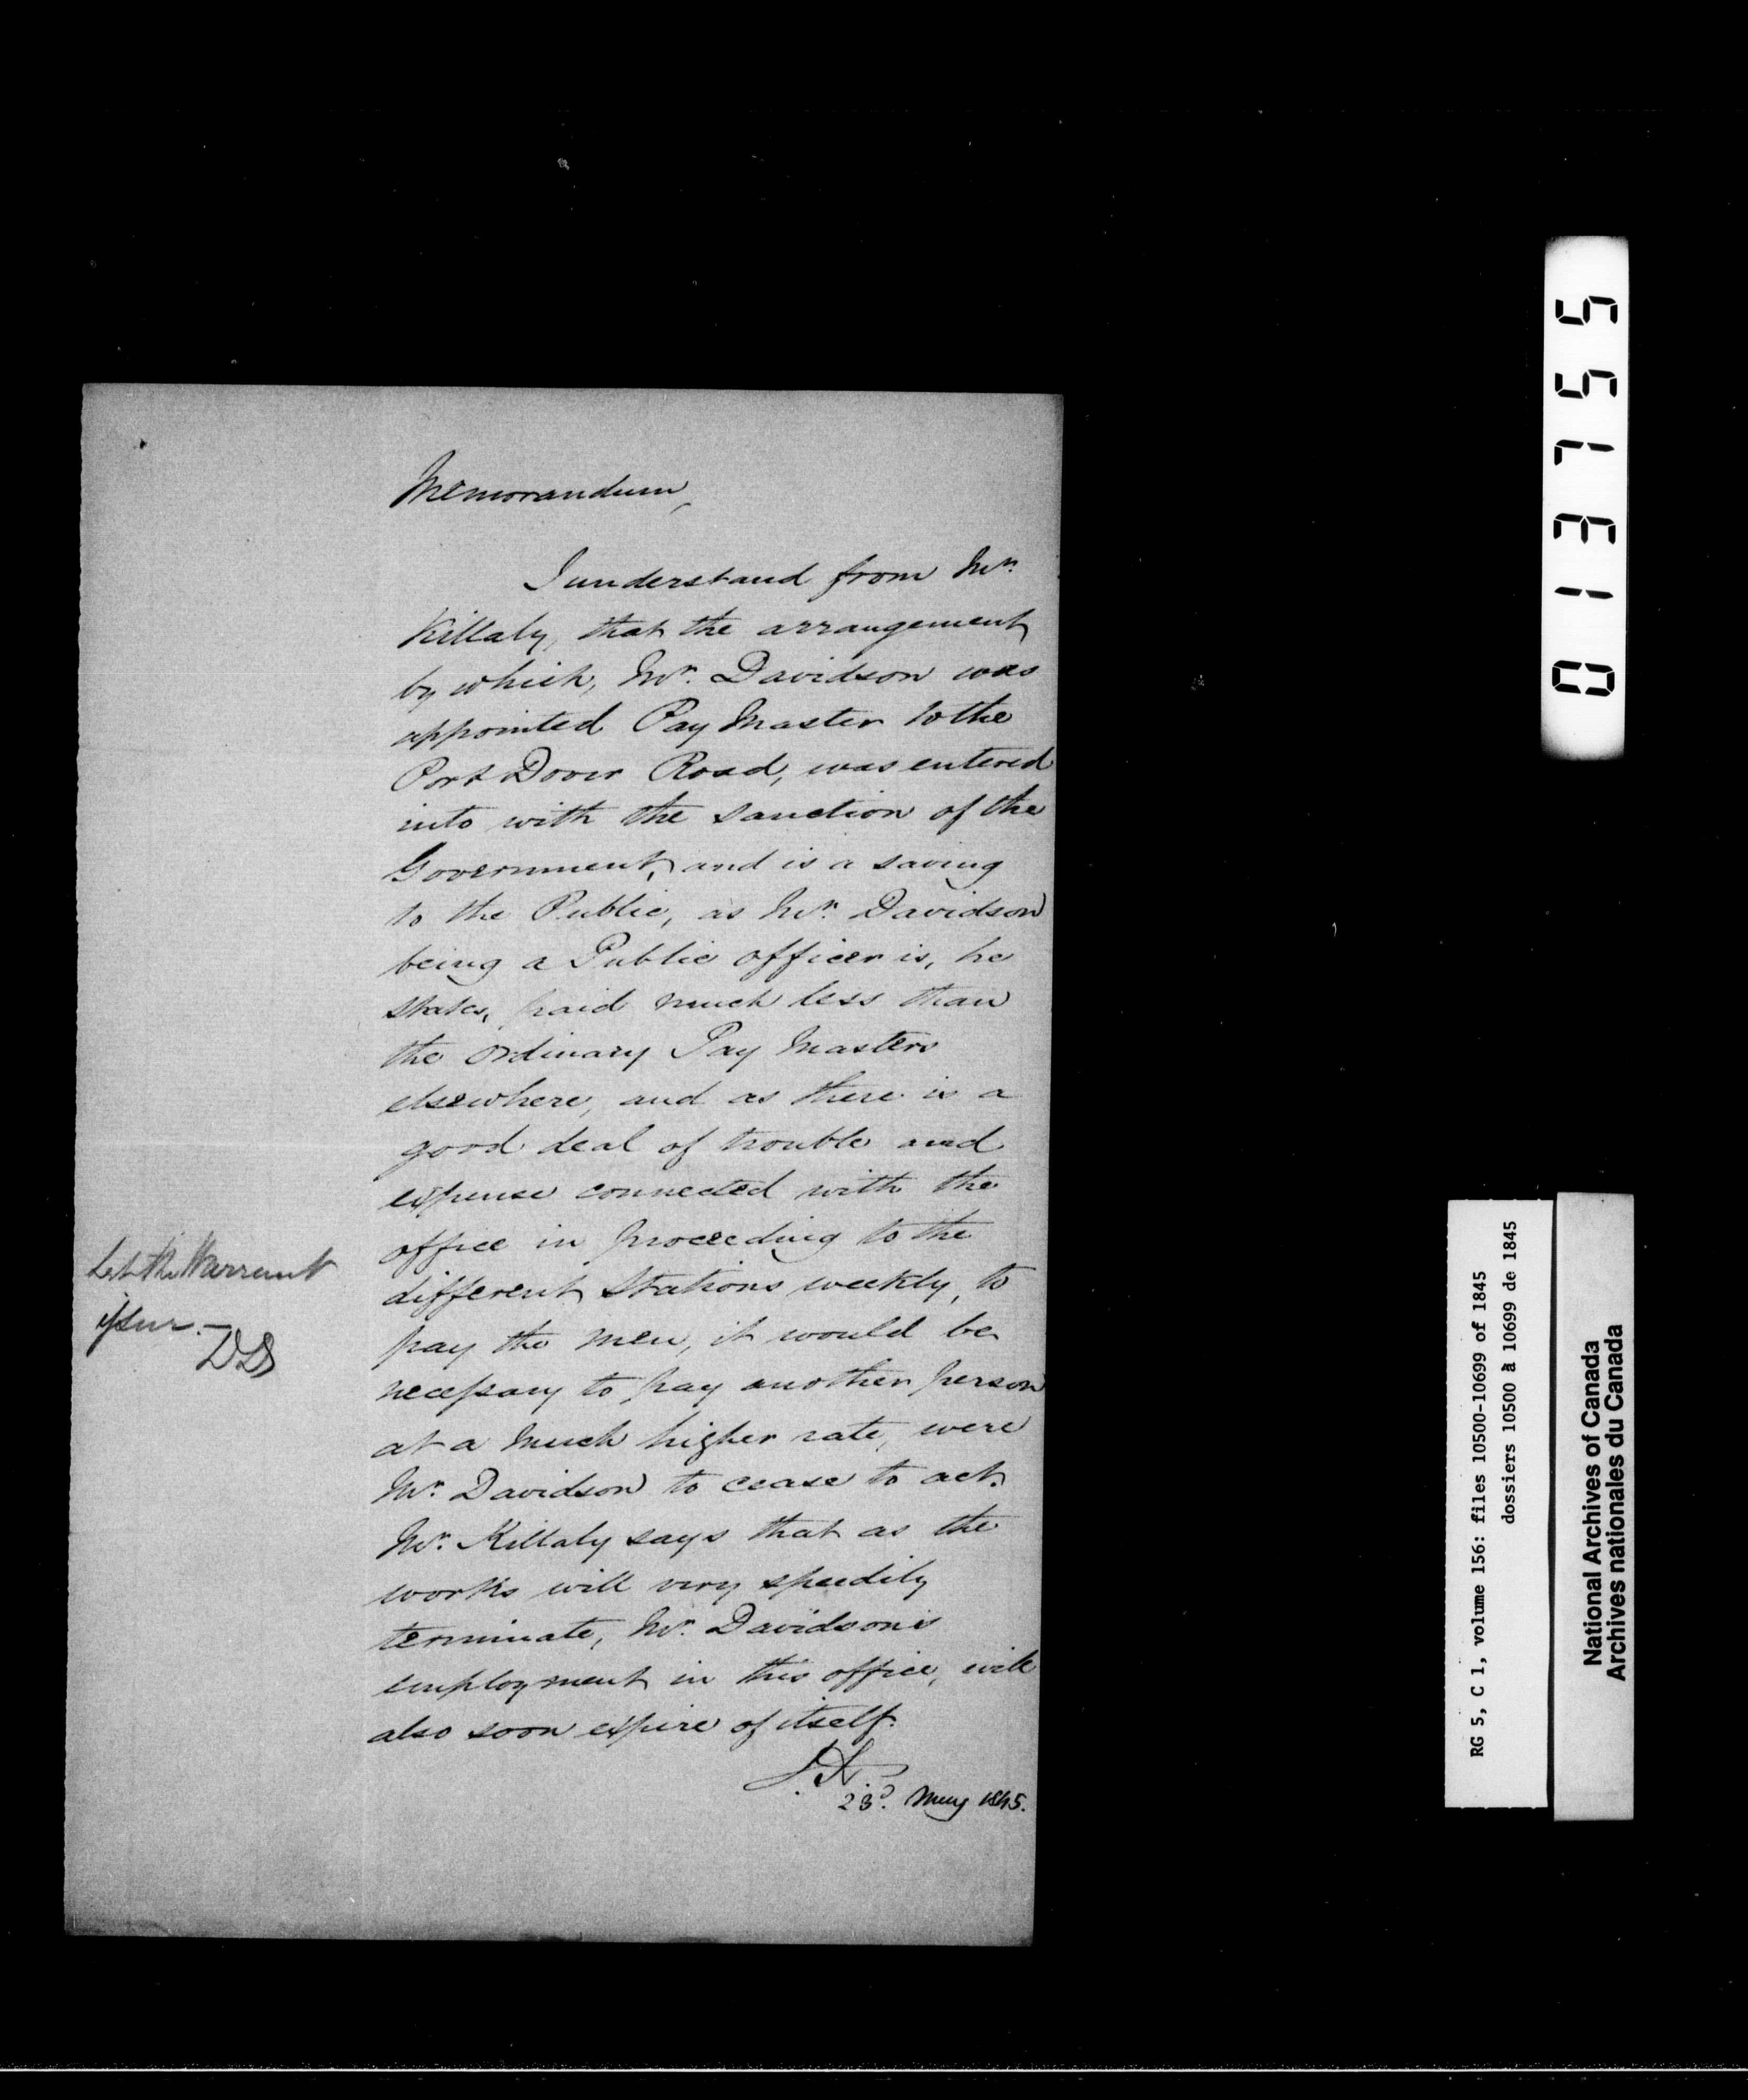 Memorandum,
I understand from Mr.
Killaly, that the arrangement
by which, Mr. Davidson was
appointed Pay Master to the
Port Dover Road, was entered
into with the sanction of the
Government, and is a saving
to the Public, as Mr. Davidson
being a Public officer is, he
states, paid much less than
the ordinary Pay Masters
elsewhere, and as there is a
good deal of trouble and
expense connected with the
office in proceeding to the
different Stations weekly, to
pay the men, it would be
necessary to pay another person
at a much higher rate, were
Mr. Davidson to cease to act.
Mr. Killaly says that as the
works will very speedily
terminate, Mr. Davidson's
employment in this office, will
also soon expire of itself.
23d. May 1845.
Let the Warrant
issue.—
013755
RG 5, C 1, volume 156: files 10500-10699 of 1845
dossiers 10500 à 10699 de 1845
National Archives of Canada
Archives nationales du Canada